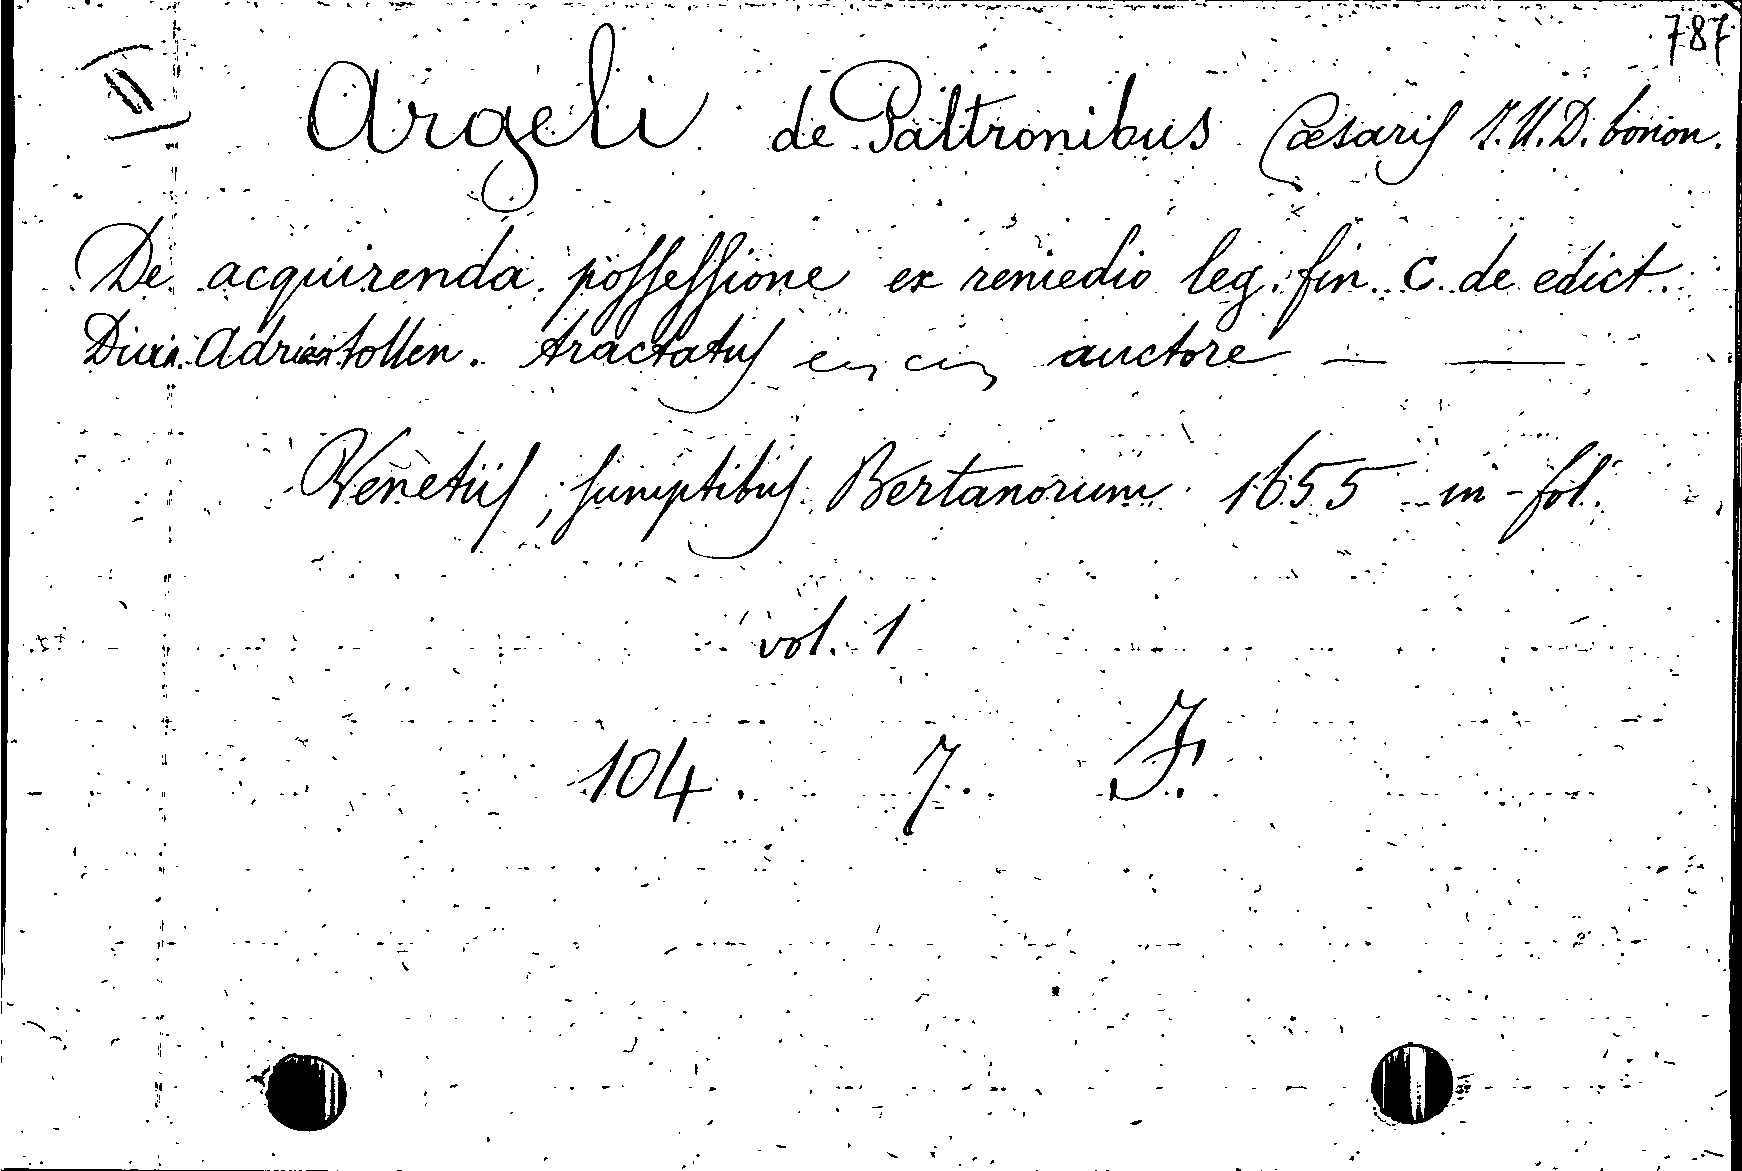 787
II Argeli de Paltronibus Cæsaris J.U.D. bonon.
De acquirenda possessione ex remedio leg. fin. C. de edict.
Adrian tollen. tractatus auctore — —
Venetiis, sumptibus Bertanorum 1655 in-fol.
vol. 1
104. 7. F.